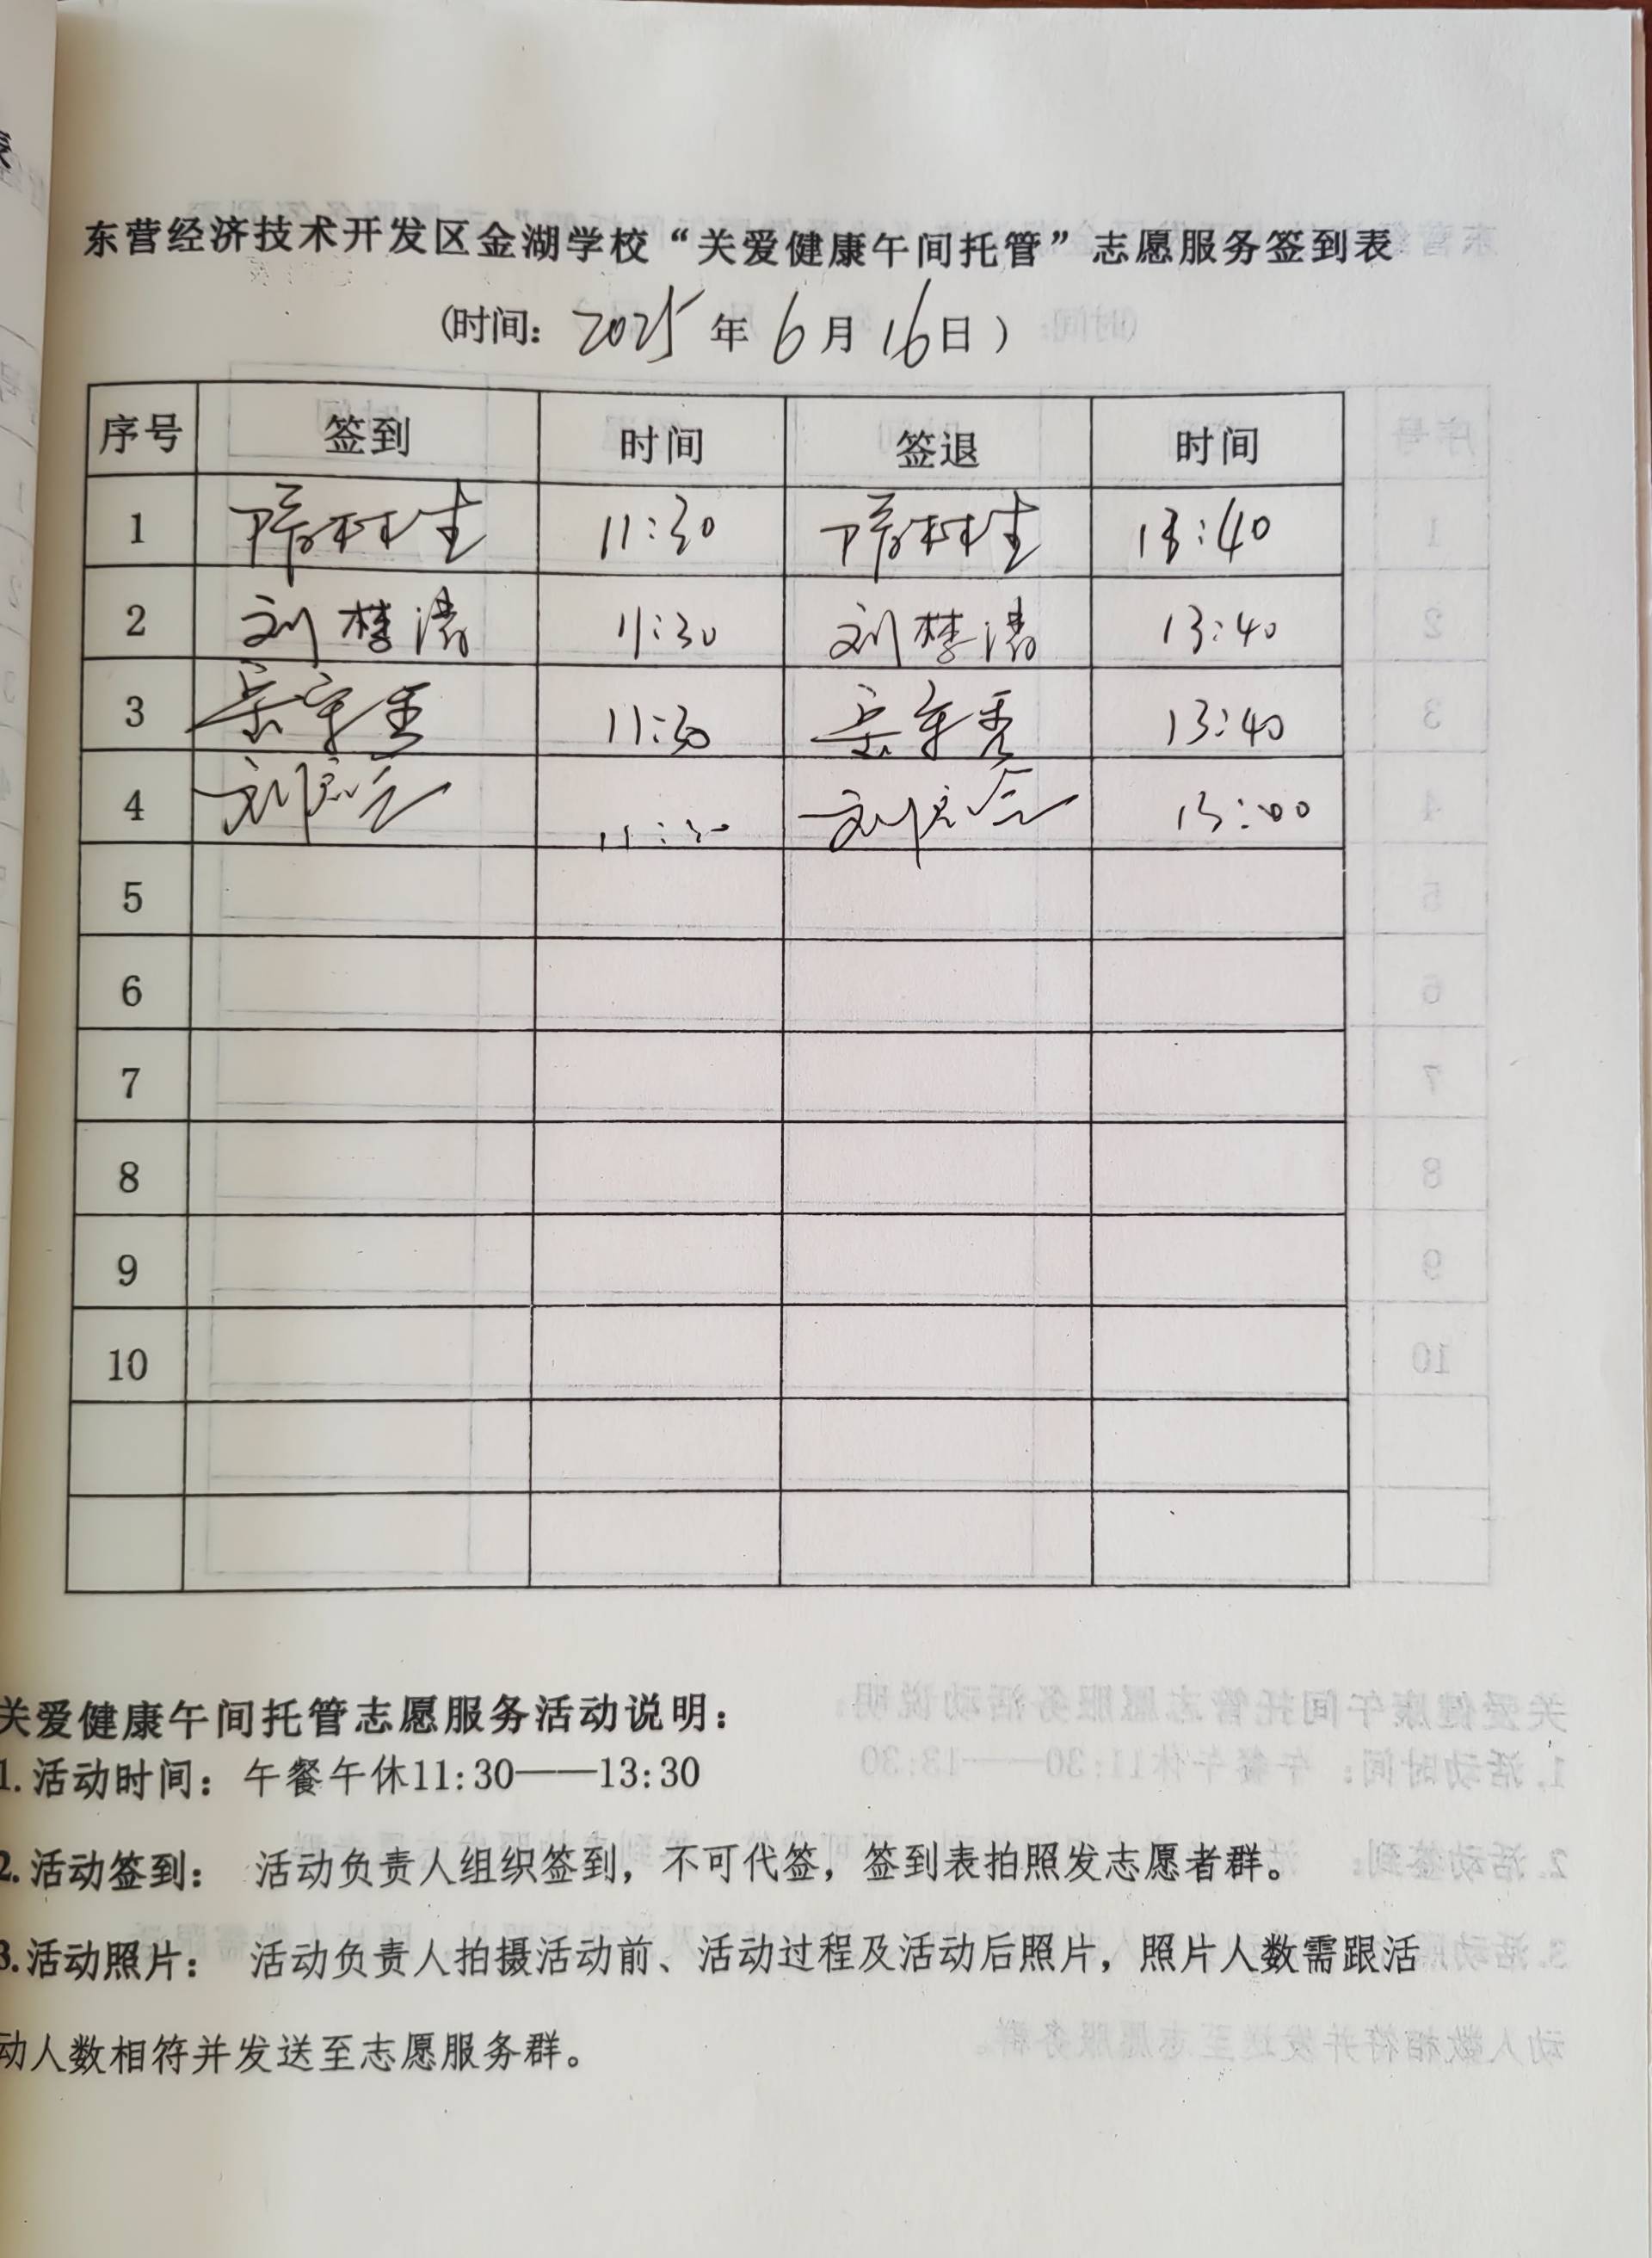 东营经济技术开发区金湖学校“关爱健康午间托管”志愿服务签到表
(时间: 2025年6月16日)
序号 签到 时间 签退 时间
1 11:30 13:40
2 刘桂清 11:30 刘桂清 13:40
3 11:30 13:40
4 11:30 13:00
5
6
7
8
9
10
关爱健康午间托管志愿服务活动说明:
1.活动时间: 午餐午休11:30——13:30
2.活动签到: 活动负责人组织签到,不可代签,签到表拍照发志愿者群。
3.活动照片: 活动负责人拍摄活动前、活动过程及活动后照片,照片人数需跟活
动人数相符并发送至志愿服务群。